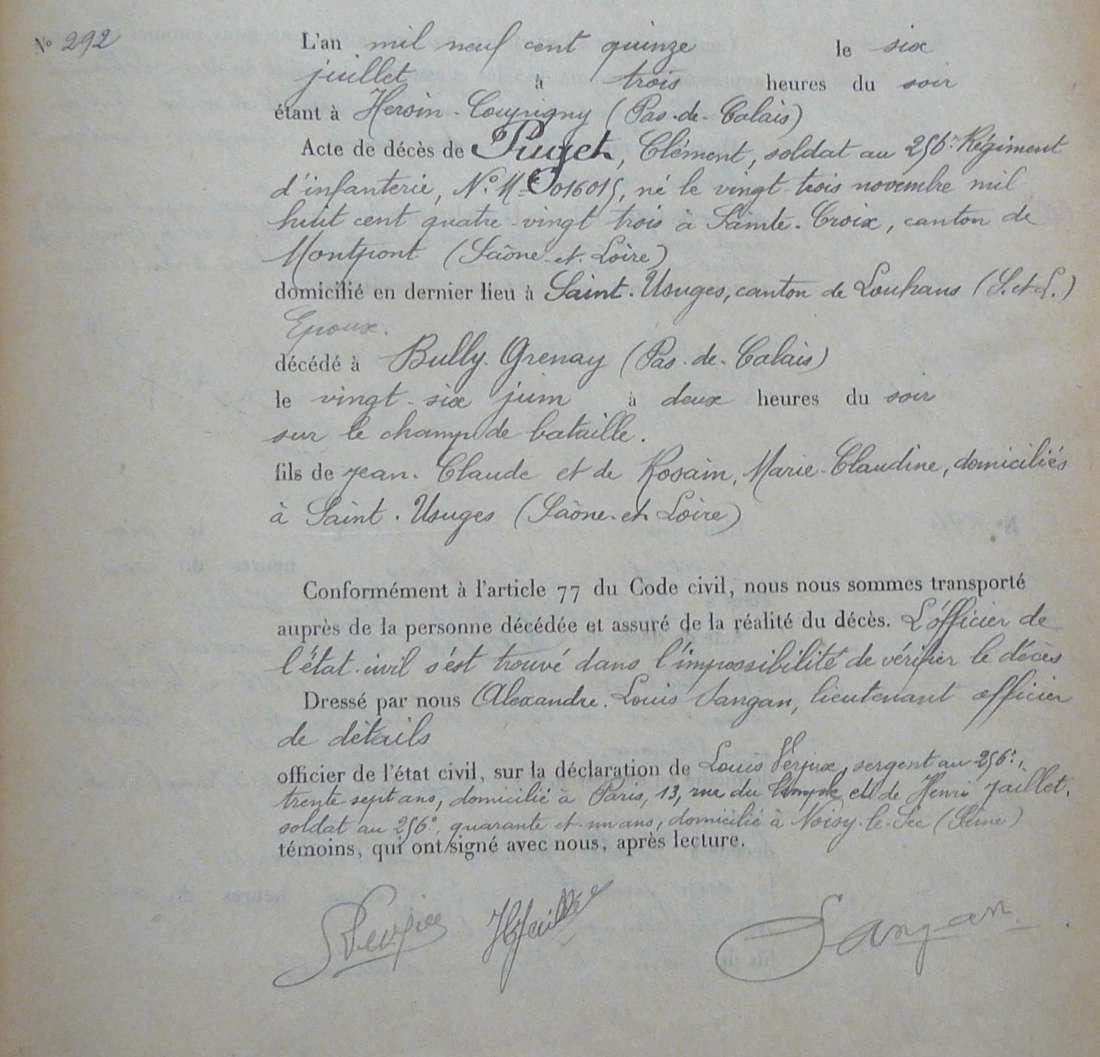 N° 292
L'an mil neuf cent quinze le six
juillet à trois heures du soir
étant à Hersin-Coupigny (Pas-de-Calais)
Acte de décès de Puget, Clément, soldat au 256e Régiment
d'infanterie, N° M 016015, né le vingt-trois novembre mil
huit cent quatre-vingt trois à Sainte-Croix, canton de
Montpont (Saône-et-Loire)
domicilié en dernier lieu à Saint-Usuges, canton de Louhans (S.et L.)
Epoux.
décédé à Bully-Grenay (Pas-de-Calais)
le vingt-six juin à deux heures du soir
sur le champ de bataille.
fils de Jean-Claude et de Rosain, Marie-Claudine, domiciliés
à Saint-Usuges (Saône-et-Loire)
Conformément à l'article 77 du Code civil, nous nous sommes transporté
auprès de la personne décédée et assuré de la réalité du décès. L'officier de
l'état-civil s'est trouvé dans l'impossibilité de vérifier le décès
Dressé par nous Alexandre-Louis Sangan, lieutenant officier
de détails
officier de l'état civil, sur la déclaration de Louis Verjux, sergent au 256e,
trente sept ans, domicilié à Paris, 13, rue du Temple et de Henri Jaillet,
soldat au 256e, quarante et un ans, domicilié à Noisy-le-Sec (Seine)
témoins, qui ont signé avec nous, après lecture.
Verjux HJaillet Sangan